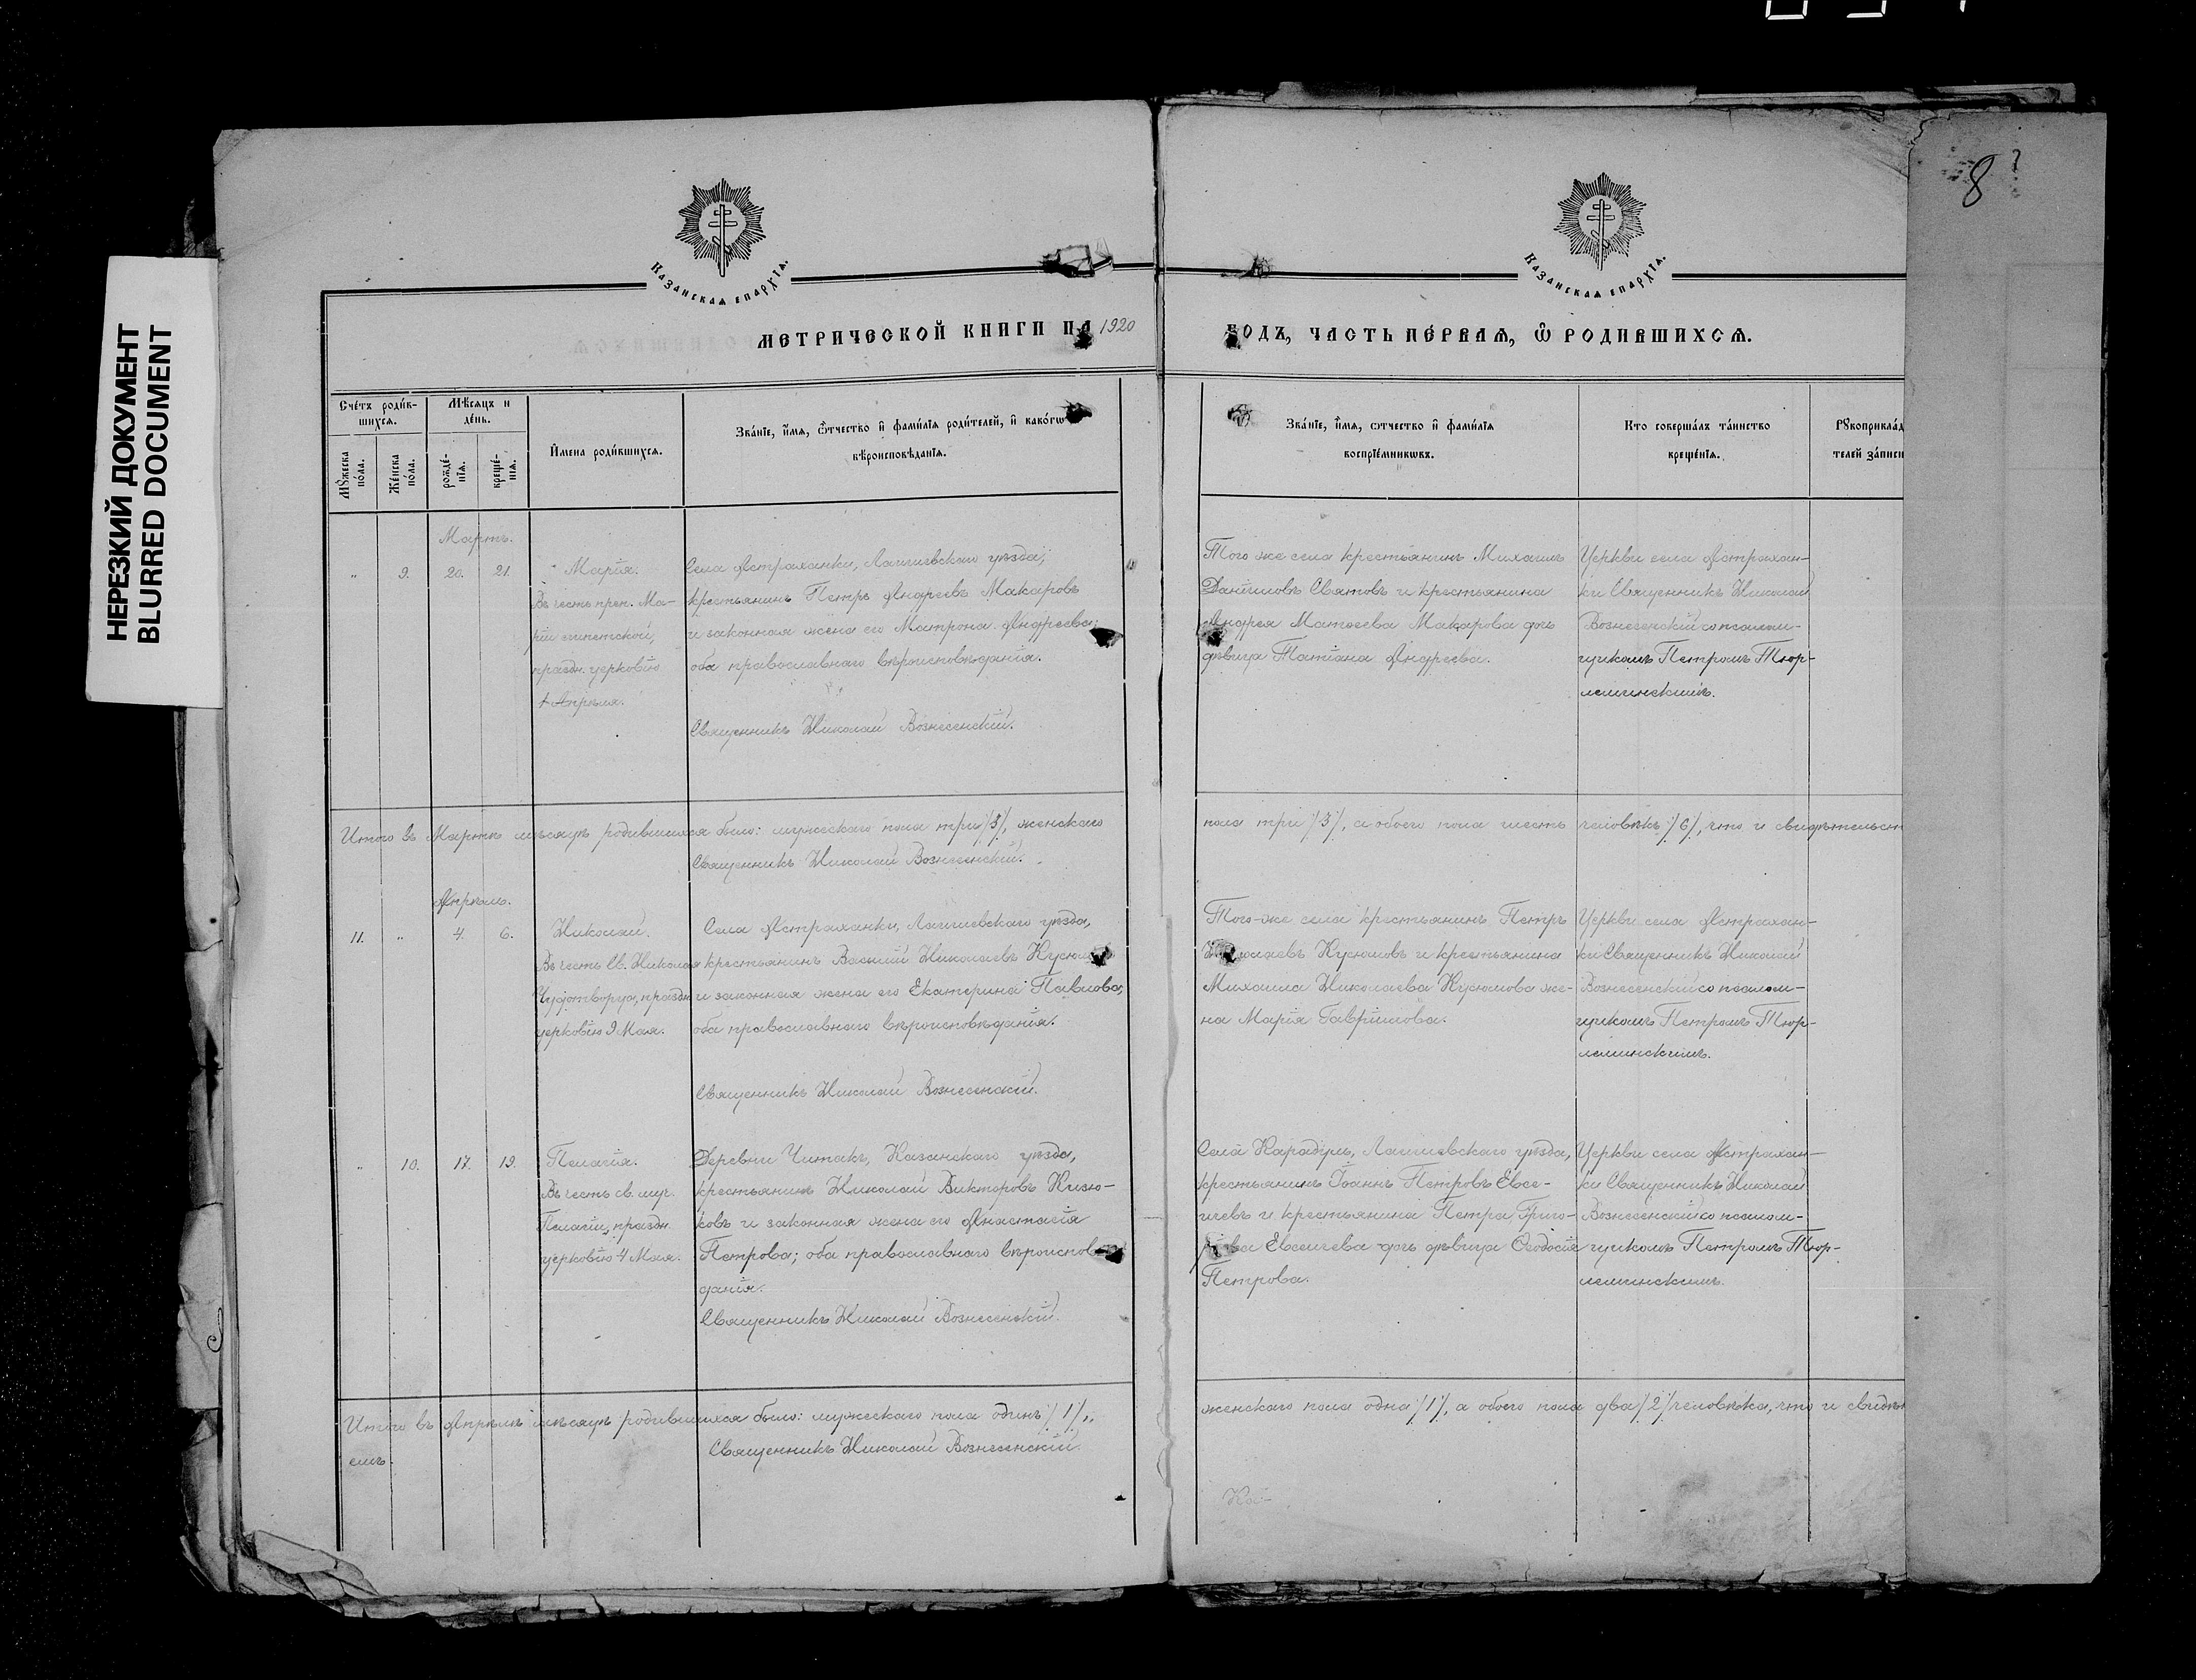 НЕРЕЗКИЙ ДОКУМЕНТ
BLURRED DOCUMENT
8
КАЗАНСКАѦ ЕПАРХІѦ.
КАЗАНСКАѦ ЕПАРХІѦ.
МЕТРИЧЕСКОЙ КНИГИ НА 1920
ГОДЪ, ЧАСТЬ ПЕ́РВАѦ, Ѽ РОДИВШИХСѦ.
Сче́тъ роди́в-
шихсѧ.
Мѣ́сѧцъ и
де́нь.
Мꙋ́жеска
по́ла.
Же́нска
по́ла.
рожде́-
нїѧ.
креще́-
нїѧ.
И҆мена роди́вшихсѧ.
Зва́нїе, и҆́мѧ, ѻ҆́тчество и҆ фами́лїѧ роди́телей, и҆ како́гѡ
вѣроисповѣ́данїѧ.
Зва́нїе, и҆́мѧ, ѻтчество и҆ фами́лїѧ
воспрїе́мникѡвъ.
Кто соверша́лъ та́инство
креще́нїѧ.
Рꙋкоприкла́д
телей за́писи
Мартъ.
„ 9. 20. 21.
Марія.
Въ честь преп. Ма-
ріи египетской,
праздн. церковію
1 Апрѣля.
Села Астраханки, Лаишевскаго уѣзда,
крестьянинъ Петръ Андреевъ Макаровъ
и законная жена его Матрона Андреева;
оба православнаго вѣроисповѣданія.
Священникъ Николай Вознесенскій.
Того же села крестьянинъ Михаилъ
Данииловъ Святовъ и крестьянина
Андрея Матѳеева Макарова дочь
дѣвица Татіана Андреева.
Церкви села Астрахан-
ки Священникъ Николай
Вознесенскій со псалом-
щикомъ Петромъ Тюр-
леминскимъ.
Итого въ Мартѣ мѣсяцѣ родившихся было: мужескаго пола три /3/, женскаго
пола три /3/, а обоего пола шесть человѣкъ /6/, что и свидѣтельст
Священникъ Николай Вознесенскій.
Апрѣль.
11. „ 4. 6.
Николай.
Въ честь Св. Николая
Чудотворца, праздн
церковію 9 Мая.
Села Астраханки, Лаишевскаго уѣзда,
крестьянинъ Василій Николаевъ
и законная жена его Екатерина Павлова;
оба православнаго вѣроисповѣданія.
Священникъ Николай Вознесенскій.
Того-же села крестьянинъ Петръ
Николаевъ Кусюмовъ и крестьянина
Михаила Николаева Кусюмова же-
на Марія Гавріилова.
Церкви села Астрахан-
ки Священникъ Николай
Вознесенскій со псалом-
щикомъ Петромъ Тюр-
леминскимъ.
„ 10. 17. 19.
Пелагія.
Въ честь св. муч.
Пелагіи, праздн.
церковію 4 Мая.
Деревни Читакъ, Казанскаго уѣзда,
крестьянинъ Николай Викторовъ Кизю-
ковъ и законная жена его Анастасія
Петрова; оба православнаго вѣроиспов
данія.
Священникъ Николай Вознесенскій.
Села Карадули, Лаишевскаго уѣзда,
крестьянинъ Іоаннъ Петровъ Евсе-
ичевъ и крестьянина Петра Григо-
рьева Евсеичева дочь дѣвица Ѳеодосія
Петрова.
Церкви села Астрахан-
ки Священникъ Николай
Вознесенскій со псалом-
щикомъ Петромъ Тюр-
леминскимъ.
Итого въ Апрѣлѣ мѣсяцѣ родившихся было: мужескаго пола одинъ /1/,
женскаго пола одна /1/, а обоего пола два /2/ человѣка, что и свидѣт
емъ.
Священникъ Николай Вознесенскій.